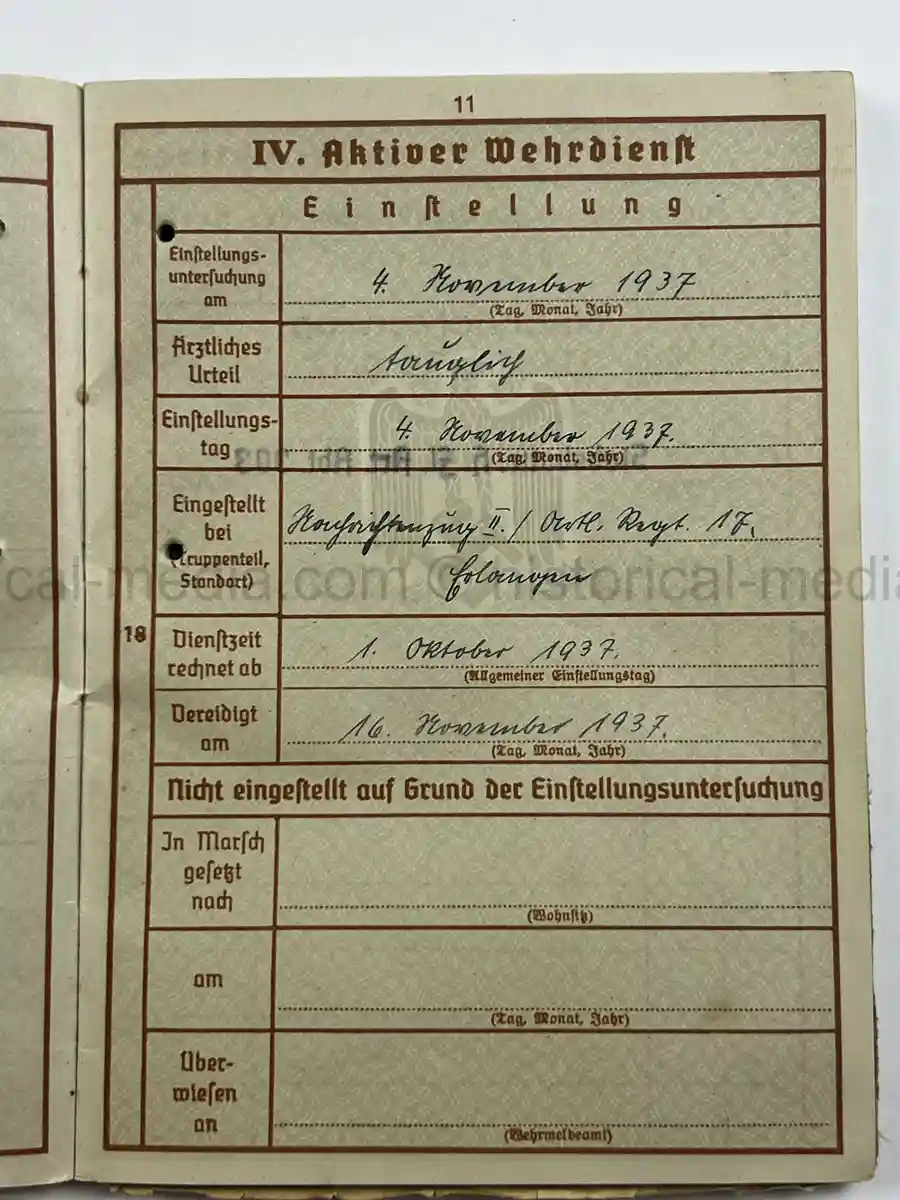 11
IV. Aktiver Wehrdienst
Einstellung
Einstellungs-
untersuchung
am
4. November 1937
(Tag, Monat, Jahr)
Ärztliches
Urteil
tauglich
Einstellungs-
tag
4. November 1937.
(Tag, Monat, Jahr)
Eingestellt
bei
(Truppenteil,
Standort)
Nachrichtenzug II./Artl. Regt. 17,
Erlangen
cal-media.com © historical-media
18
Dienstzeit
rechnet ab
1. Oktober 1937.
(Allgemeiner Einstellungstag)
Vereidigt
am
16. November 1937.
(Tag, Monat, Jahr)
Nicht eingestellt auf Grund der Einstellungsuntersuchung
In Marsch
gesetzt
nach
(Wohnsitz)
am
(Tag, Monat, Jahr)
Über-
wiesen
an
(Wehrmeldeamt)